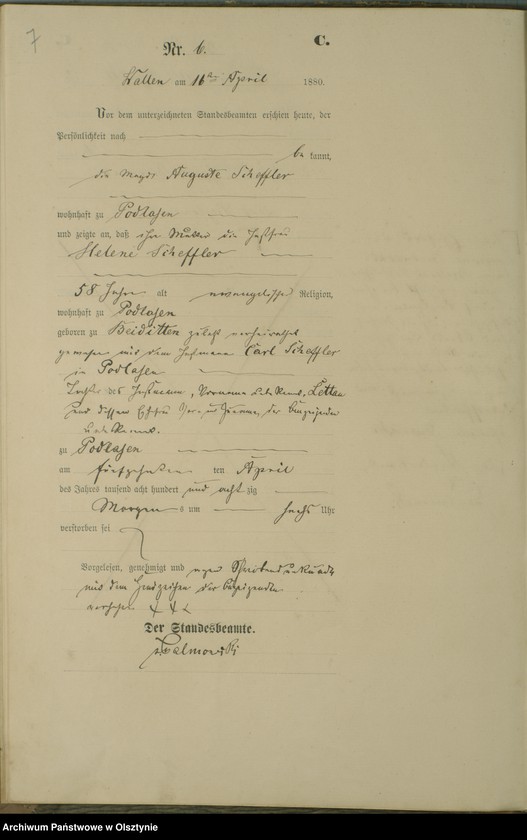 7
C.
Nr. 6.
Wallen am 16ten April 1880.
Vor dem unterzeichneten Standesbeamten erschien heute, der
Persönlichkeit nach
be kannt,
die Magd Auguste Scheffler
wohnhaft zu Podlasen
und zeigte an, daß ihre Mutter die
Helene Scheffler
58 Jahre alt evangelischer Religion,
wohnhaft zu Podlasen
geboren zu Beiditten zuletzt verheirathet
gewesen mit dem Carl Scheffler
in Podlasen
Tochter des , Vorname unbekannt, Lettau
und dessen Ehefrau der
unbekannt.
zu Podlasen
am fünfzehnten ten April
des Jahres tausend acht hundert und acht zig
Morgen s um sechs Uhr
verstorben sei
Vorgelesen, genehmigt und wegen
mit dem Handzeichen der
versehen + + +
Der Standesbeamte.
Archiwum Państwowe w Olsztynie